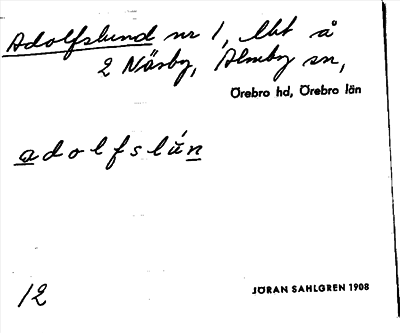 Adolfslund nr 1, lht å
2 Näsby, Almby sn,
Örebro hd, Örebro län
adolfslún
12
JÖRAN SAHLGREN 1908